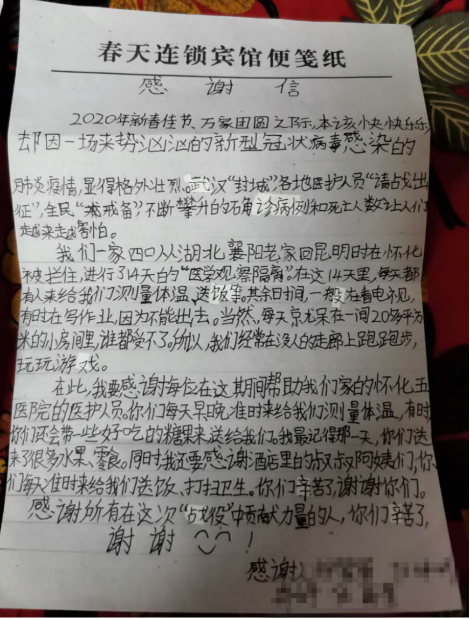 春天连锁宾馆便笺纸
感谢信
2020年新春佳节、万家团圆之际,本该快快乐乐,
却因一场来势汹汹的新型冠状病毒感染的
肺炎疫情,显得格外壮烈。武汉“封城”,各地医护人员“请战出
征”,全民“戒戒备”,不断攀升的确诊病例和死亡人数让人们
越来越害怕。
我们一家四口从湖北襄阳老家回昆明时在怀化
被拦住,进行了14天的“医学观察隔离”。在这14天里,每天都
有人来给我们测量体温、送饭等。其余时间,一般在看电视,
有时在写作业,因为不能出去。当然,每天就呆在一间20多平方
米的小房间里,谁都受不了。所以,我们经常在没人的走廊上跑跑步,
玩玩游戏。
在此,我要感谢每位在这期间帮助我们家的怀化五
医院的医护人员。你们每天早晚准时来给我们测量体温,有时
你们还会带一些好吃的糖果来送给我们。我最记得那一天,你们送
来了很多水果、零食。同时,我还要感谢酒店里的叔叔阿姨们,你
们每天准时来给我们送饭、打扫卫生。你们辛苦了,谢谢你们。
感谢所有在这次“战役”中贡献力量的人,你们辛苦了,
谢谢!
感谢人